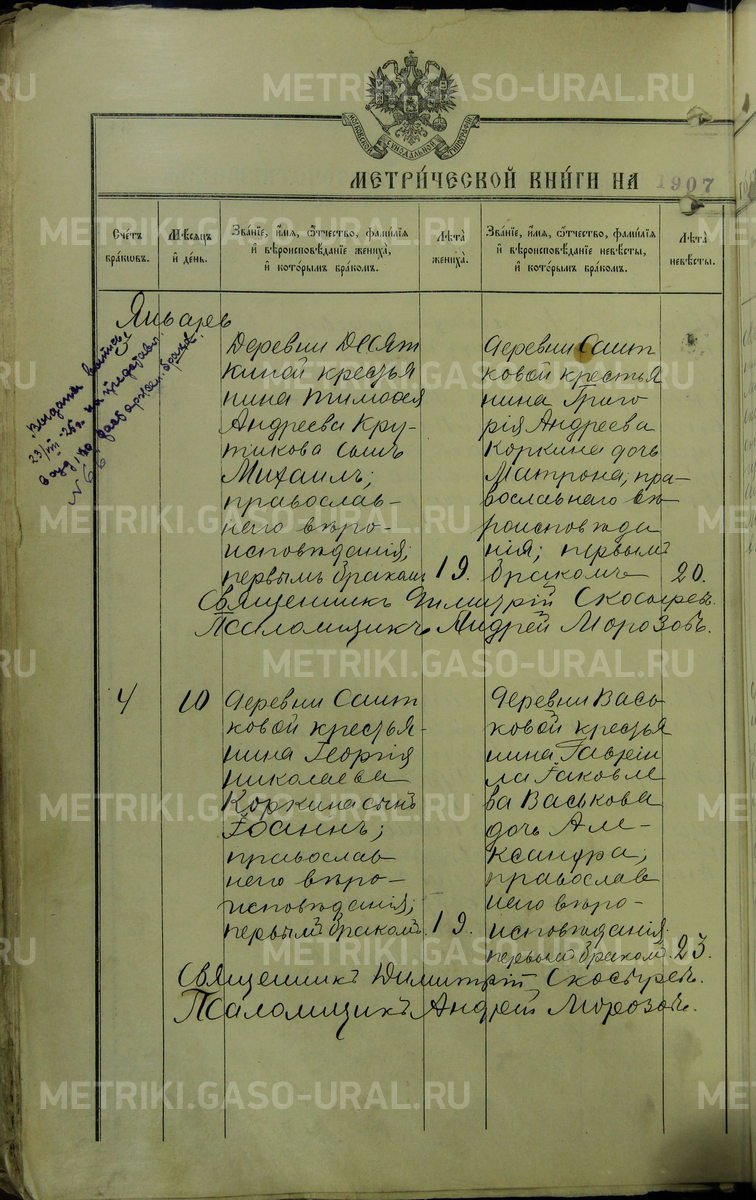 МОСКОВСКОЙ СѴНОДАЛЬНОЙ ТИПОГРАФІИ
МЕТРИ́ЧЕСКОЙ КНИ́ГИ НА 1907
Сче́тъ бра́ковъ.
Мѣ́сяцъ и де́нь.
Зва́нїе, и́мя, ѻ́тчество, фами́лїя и҆ вѣроисповѣ́данїе жениха̀, и҆ кото́рымъ бра́комъ.
Лѣ́та жениха̀.
Зва́нїе, и́мя, ѻ́тчество, фами́лїя и҆ вѣроисповѣ́данїе невѣ́сты, и҆ кото́рымъ бра́комъ.
Лѣ́та невѣ́сты.
Январев
3
Выдана выпись
23/III-26 г. на предст
в суд, по
№ 66
Деревни Десят
киной крестья
нина Тимофея
Андреева Кру-
тикова сынъ
Михаилъ;
православ-
наго вѣро-
исповѣданія;
первымъ бракомъ
19.
Деревни Саит
ковой крестья
нина Григо
рія Андреева
Коркина дочь
Матрона; пра-
вославнаго вѣ
роисповѣда
нія; первымъ
бракомъ
20.
Священникъ Димитрій Скосыревъ.
Псаломщикъ Андрей Морозовъ.
4
10
Деревни Саит
ковой крестья-
нина Георгія
Николаева
Коркина сынъ
Іоаннъ;
православ
наго вѣро-
исповѣданія;
первымъ бракомъ.
19.
Деревни Вась
ковой крестья
нина Гавріи
ла Іаковле
ва Васькова
дочь Але-
ксандра;
православ
наго вѣро-
исповѣданія
первымъ бракомъ.
23.
Священникъ Димитрій Скосыревъ.
Псаломщикъ Андрей Морозовъ.
METRIKI.GASO-URAL.RU